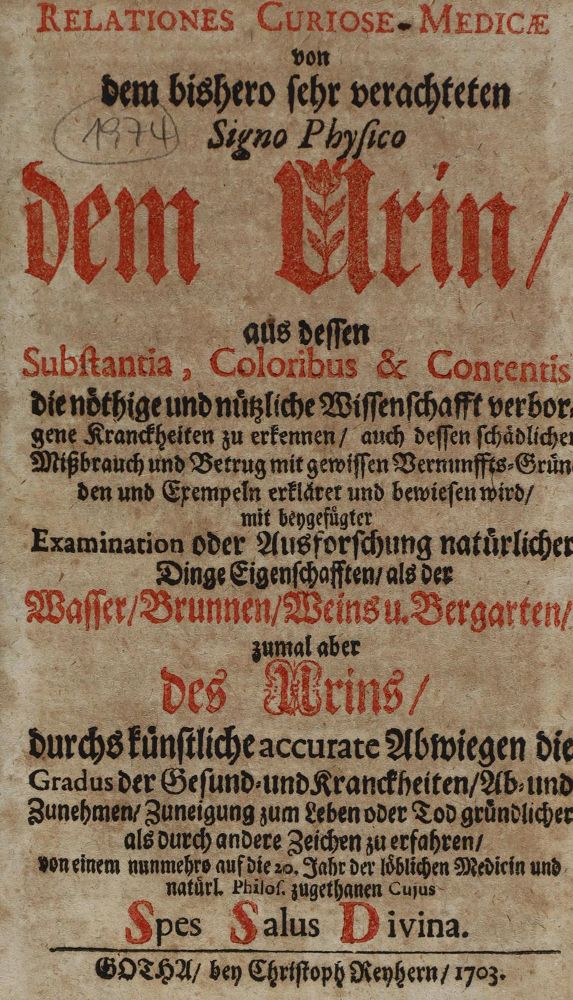 RELATIONES CURIOSE-MEDICÆ
von
dem bishero sehr verachteten
1974
Signo Physico
dem Urin/
aus dessen
Substantia, Coloribus & Contentis
die nöthige und nützliche Wissenschafft verbor-
gene Kranckheiten zu erkennen/ auch dessen schädlicher
Mißbrauch und Betrug mit gewissen Vernunffts-Grün
den und Exempeln erkläret und bewiesen wird/
mit beygefügter
Examination oder Ausforschung natürlicher
Dinge Eigenschafften/ als der
Wasser/ Brunnen/ Weins u. Bergarten/
zumal aber
des Urins/
durchs künstliche accurate Abwiegen die
Gradus der Gesund- und Kranckheiten/ Ab- und
Zunehmen/ Zuneigung zum Leben oder Tod gründlicher
als durch andere Zeichen zu erfahren/
von einem nunmehro auf die 20. Jahr der löblichen Medicin und
natürl. Philos. zugethanen Cujus
Spes Salus Divina.
GOTHA/ bey Christoph Reyhern/ 1703.